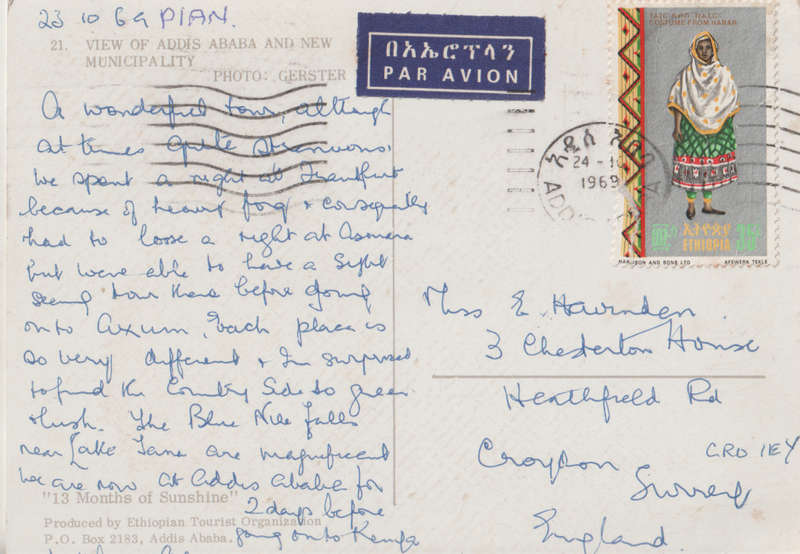 23 10 69 PIAN.
21. VIEW OF ADDIS ABABA AND NEW
MUNICIPALITY
PHOTO: GERSTER
A wonderful tour, although
at times quite strenuous.
We spent a night at Frankfurt
because of heavy fog & consequently
had to loose a night at Asmara
but were able to have a sight
seeing tour there before going
onto Axum. Each place is
so very different & I'm surprised
to find the Country Side so green
& lush. The Blue Nile falls
near Lake Tana are magnificent
We are now at Addis Ababa for
2 days before
going onto Kenya
"13 Months of Sunshine"
Produced by Ethiopian Tourist Organization
P.O. Box 2183, Addis Ababa.
በአኤሮፕላን
PAR AVION
COSTUME FROM HARAR
ኢትዮጵያ
ETHIOPIA
HARRISON AND SONS LTD
AFEWERK TEKLE
አዲስ አበባ
24 - 10
1969
ADDIS
Miss E. Hawnden
3 Chesterton House
Heathfield Rd
Croydon
CR0 1EY
Surrey
England.